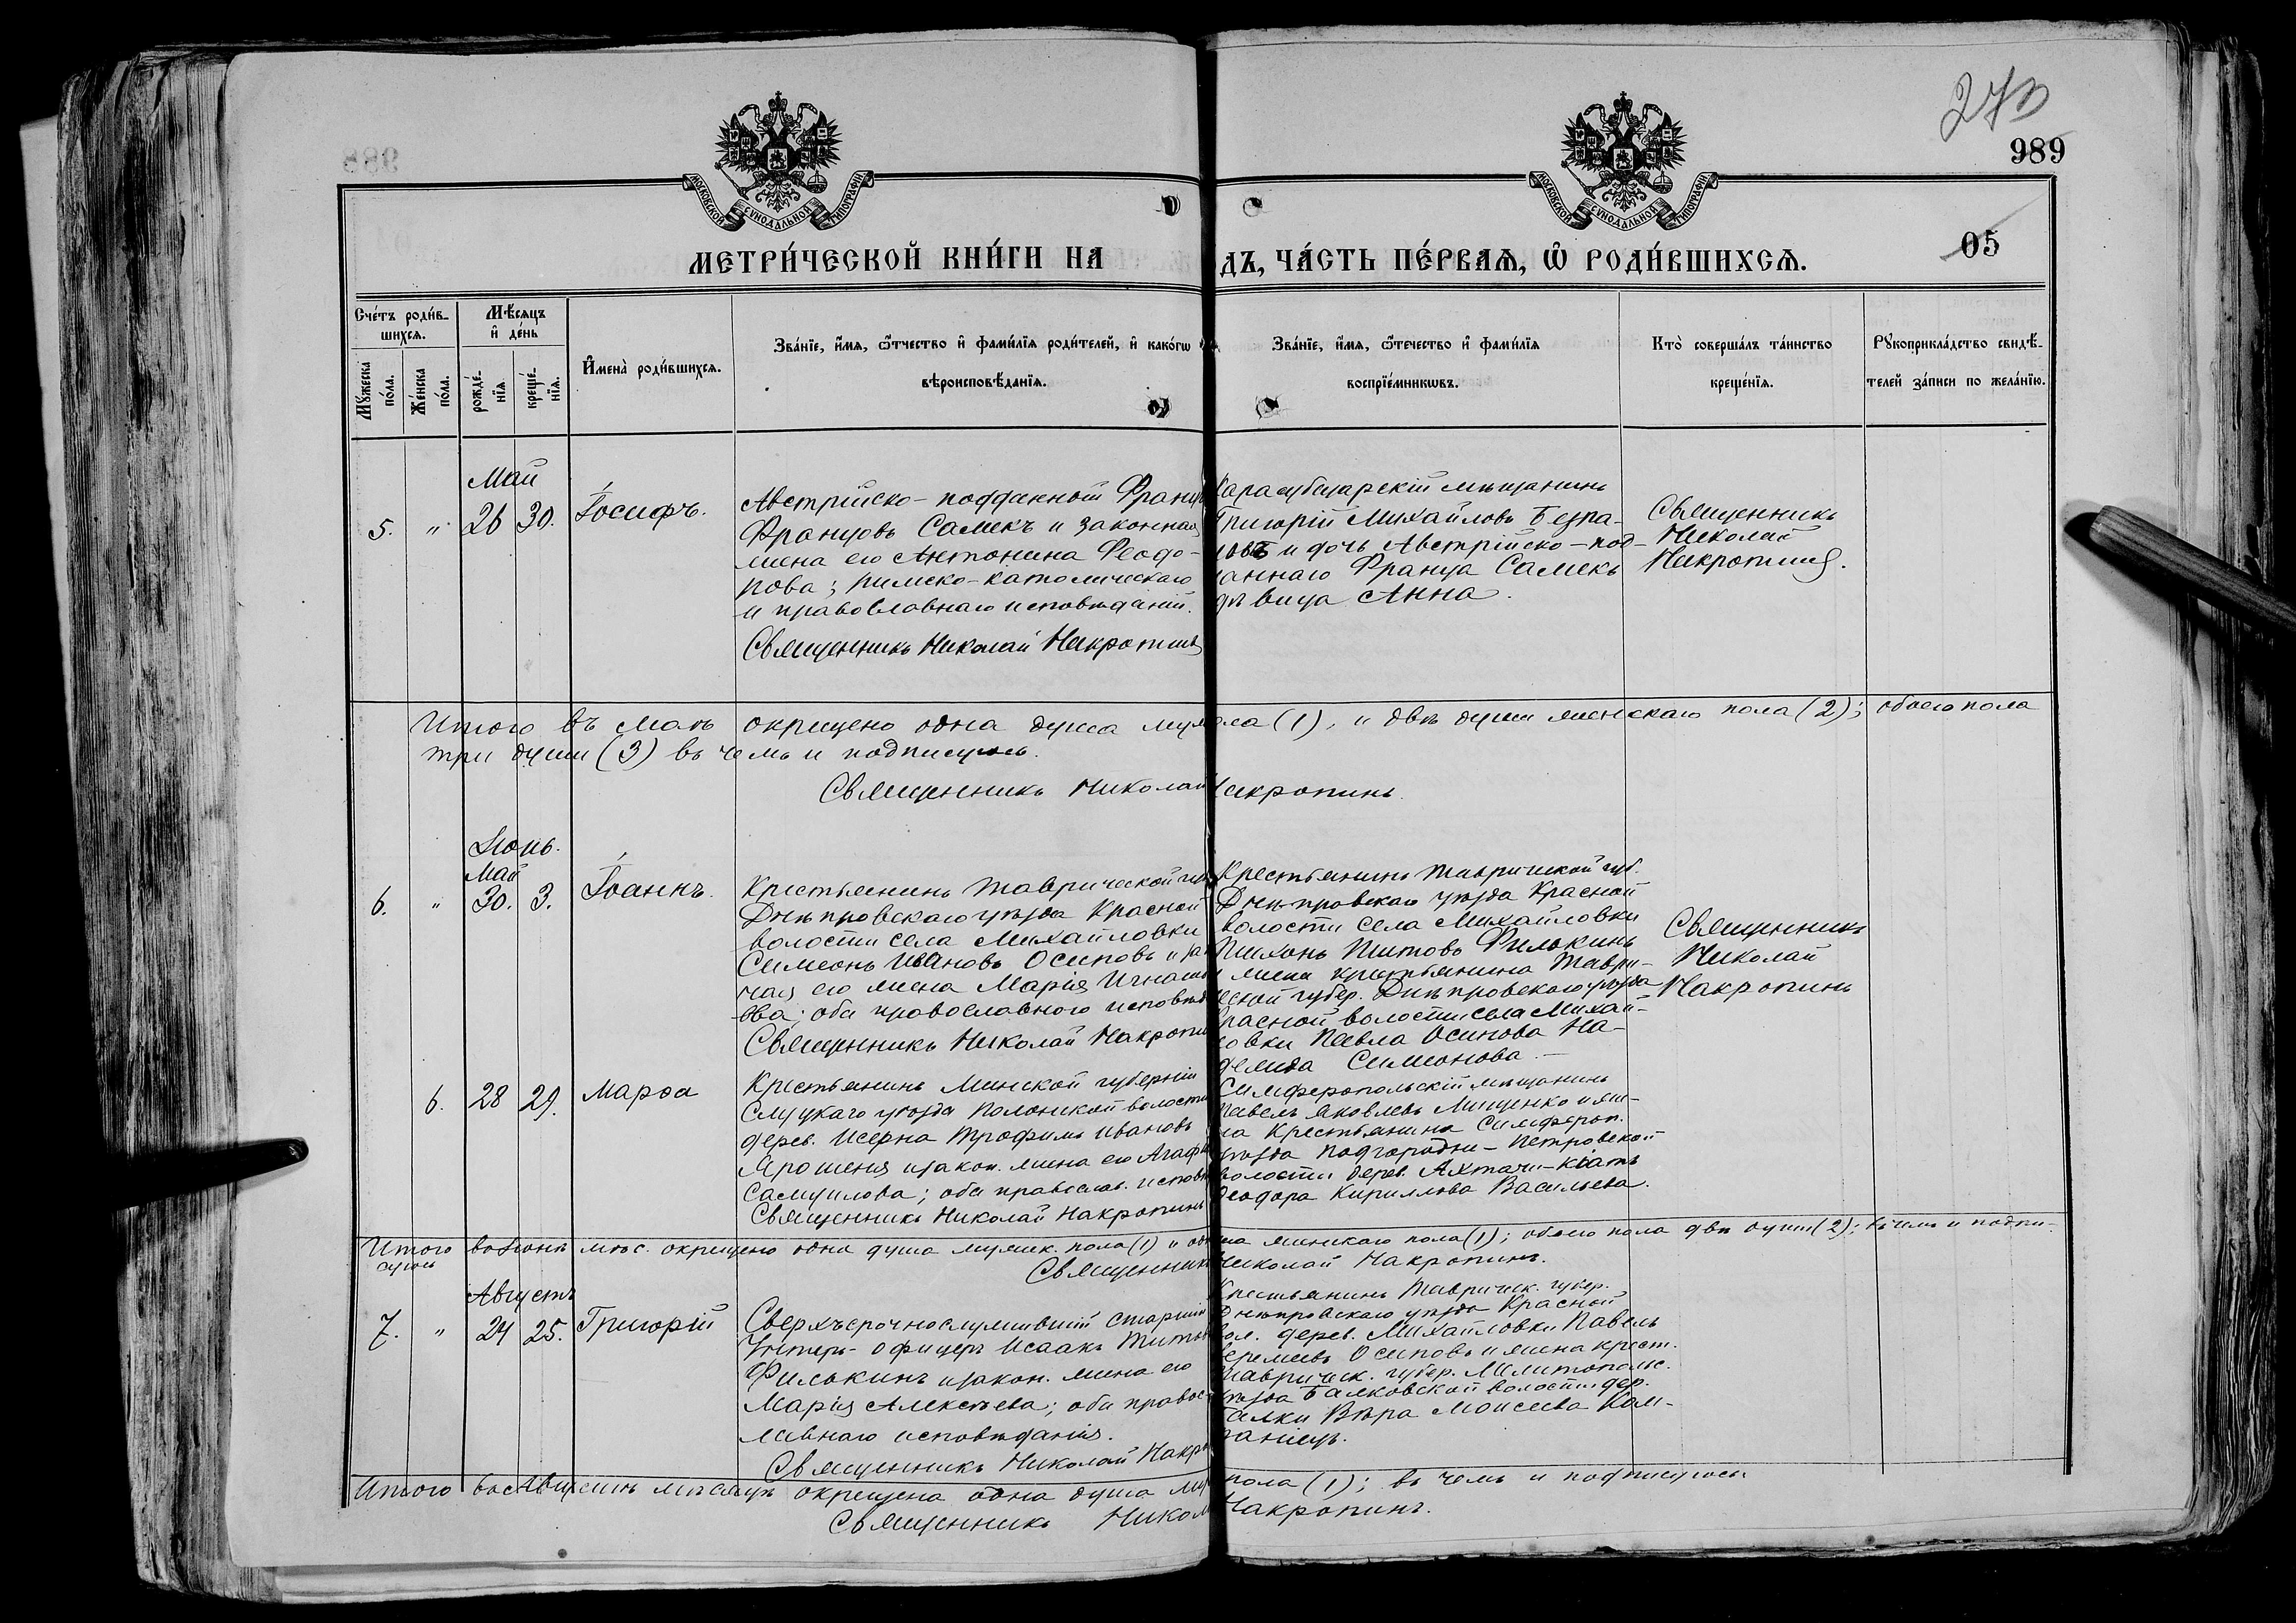 273
989
988
МОСКОВСКОЙ СѴНОДАЛЬНОЙ ТИПОГРАФІИ
МОСКОВСКОЙ СѴНОДАЛЬНОЙ ТИПОГРАФІИ
05
МЕТРИ́ЧЕСКОЙ КНИ́ГИ НА
ДЪ, ЧА́СТЬ ПЕ́РВАЯ, Ѡ РОДИ́ВШИХСЯ.
Сче́тъ роди́в-
шихся.
Мѣ́сяцъ
и де́нь
Му́жеска
по́ла.
Же́нска
по́ла.
рожде́-
нїя
креще́-
нїя.
Имена̀ роди́вшихся.
Зва́нїе, и́мя, ѻ́тчество и фами́лїя роди́телей, и како́гѡ
вѣроисповѣ́данїя.
Зва́нїе, и́мя, ѻ́течество и фами́лїя
воспрїе́мникѡвъ.
Кто̀ соверша́лъ та́инство
креще́нїя.
Рꙋкоприкла́дство свидѣ́-
телей за́писи по жела́нїю.
Май
5. " 26 30. Іосифъ.
Австрійско-подданной Францъ
Францовъ Самекъ и законная
жена его Антонина Феодо-
рова; римско-католическаго
и православнаго исповѣданій.
Священникъ Николай Накропинъ
Карасубазарскій мѣщанинъ
Григорій Михайловъ
и дочь Австрійско-под-
даннаго Франца Самекъ
дѣвица Анна.
Священникъ
Николай
Накропинъ.
Итого въ маѣ окрещено одна душа муж. пола (1), и двѣ души женскаго пола (2); обоего пола
три души (3) въ чемъ и подписуюсь.
Священникъ Николай Накропинъ.
Іюнь.
Май
6. " 30. 3. Іоаннъ.
Крестьянинъ Таврической губ.
Днѣпровскаго уѣзда Красной
волости села Михайловки
Симеонъ Ивановъ Осиповъ и зак
ная его жена Марія Игнать
ева; оба православного исповѣд
Священникъ Николай Накропинъ
Крестьянинъ Таврической губ.
Днѣпровскаго уѣзда Красной
волости села Михайловки
Тихонъ Титовъ Филькинъ
и жена крестьянина Таври-
ческой губер. Днѣпровскаго уѣзда
Красной волости села Михай-
ловки Павла Осипова На-
Симионова.
Священникъ
Николай
Накропинъ
6. 28 29. Марѳа
Крестьянинъ Минской губерніи
Слуцкаго уѣзда волости
дерев. Исерна Трофимъ Ивановъ
Ярошеня и закон. жена его Агафія
Самуилова; оба православ. исповѣд
Священникъ Николай Накропинъ
Симферопольскій мѣщанинъ
Павелъ Яковлевъ Мищенко и же-
на крестьянина Симфероп.
уѣзда Подгородне-Петровской
волости дерев. Ахтачи-Кіатъ
Ѳеодора Кириллова Васильева.
Итого во Іюнѣ мѣс. окрещено одна душа мужск. пола (1) и одна женскаго пола (1); обоего пола двѣ души (2); въ чемъ и подпи-
суюсь
Священникъ Николай Накропинъ.
Августъ
7. " 24 25. Григорій
Сверхъсрочнослужившій старшій
Унтеръ-офицеръ Исаакъ Титовъ
Филькинъ и закон. жена его
Марія Алексѣева; оба правос-
лавнаго исповѣданія.
Священникъ Николай Накро
Крестьянинъ Тавричск. губер.
Днѣпровскаго уѣзда Красной
вол. дерев. Михайловки Павелъ
Еремѣевъ Осиповъ и жена крест.
Тавричск. губер. Мелитопольс.
уѣзда Балковской волости дер.
Балки Вѣра Моисеева
Итого во Августѣ мѣсяцѣ окрещена одна душа муж пола (1); въ чемъ и подписуюсь
Священникъ Никол Накропинъ.